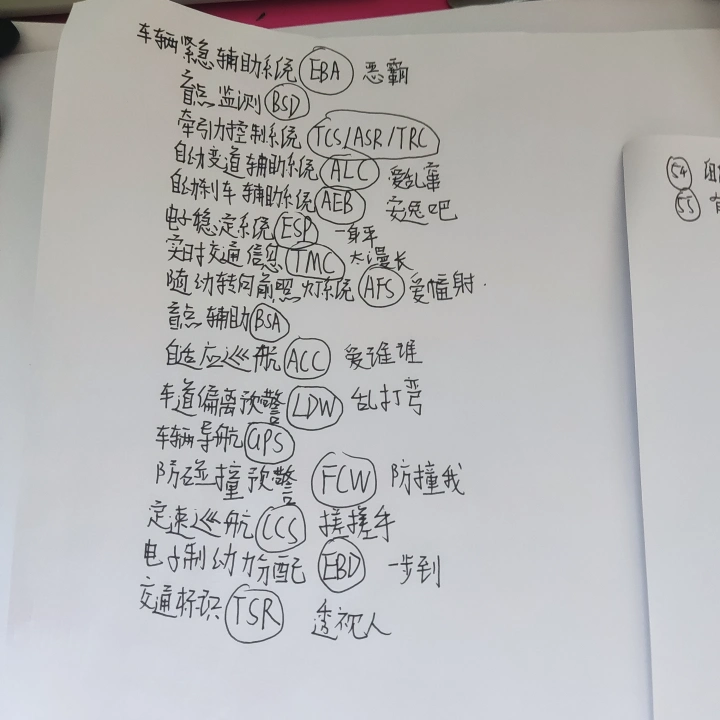 车辆紧急辅助系统 EBA 恶霸
盲点监测 BSD
牵引力控制系统 TCS/ASR/TRC
自动变道辅助系统 ALC 爱乱窜
自动刹车辅助系统 AEB
电子稳定系统 ESP 一身平
实时交通信息 TMC 太漫长
随动转向前照灯系统 AFS 爱辐射.
盲点辅助 BSA
自适应巡航 ACC 爱谁谁
车道偏离预警 LDW 乱打弯
车辆导航 GPS
防碰撞预警 FCW 防撞我
定速巡航 CCS 搓搓手
电子制动力分配 EBD 一步到
交通标识 TSR 透视人
54
55